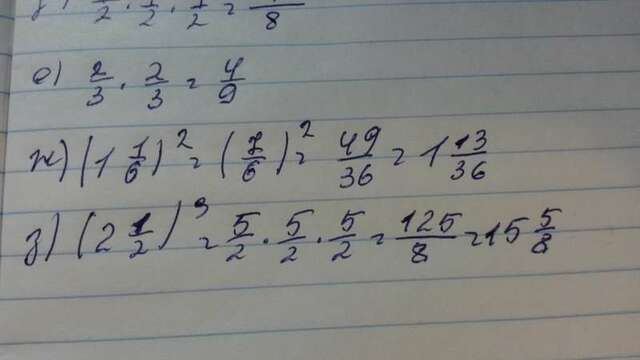 1/2 · 1/2 · 1/2 = 1/8
е) 2/3 · 2/3 = 4/9
ж) (1 1/6)² = (7/6)² = 49/36 = 1 13/36
з) (2 1/2)³ = 5/2 · 5/2 · 5/2 = 125/8 = 15 5/8